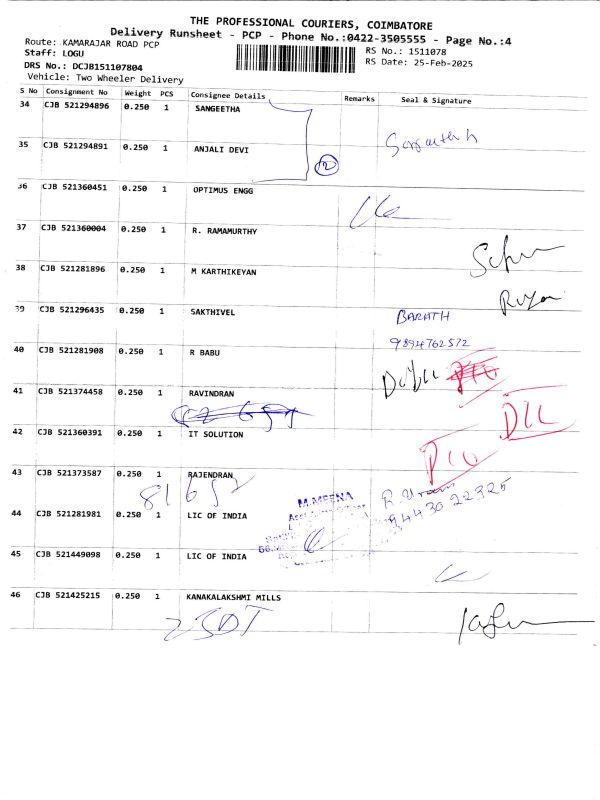 THE PROFESSIONAL COURIERS, COIMBATORE
Delivery Runsheet - PCP - Phone No.:0422-3505555 - Page No.:4
Route: KAMARAJAR ROAD PCP
RS No.: 1511078
Staff: LOGU
RS Date: 25-Feb-2025
DRS No.: DCJB151107804
Vehicle: Two Wheeler Delivery
S No Consignment No Weight PCS Consignee Details Remarks Seal & Signature
34 CJB 521294896 0.250 1 SANGEETHA
35 CJB 521294891 0.250 1 ANJALI DEVI
2
36 CJB 521360451 0.250 1 OPTIMUS ENGG
37 CJB 521360004 0.250 1 R. RAMAMURTHY
38 CJB 521281896 0.250 1 M KARTHIKEYAN
39 CJB 521296435 0.250 1 SAKTHIVEL
BARATH
9894762572
40 CJB 521281908 0.250 1 R BABU
41 CJB 521374458 0.250 1 RAVINDRAN
42 CJB 521360391 0.250 1 IT SOLUTION
43 CJB 521373587 0.250 1 RAJENDRAN
M.MEENA
94430 22325
44 CJB 521281981 0.250 1 LIC OF INDIA
45 CJB 521449098 0.250 1 LIC OF INDIA
46 CJB 521425215 0.250 1 KANAKALAKSHMI MILLS